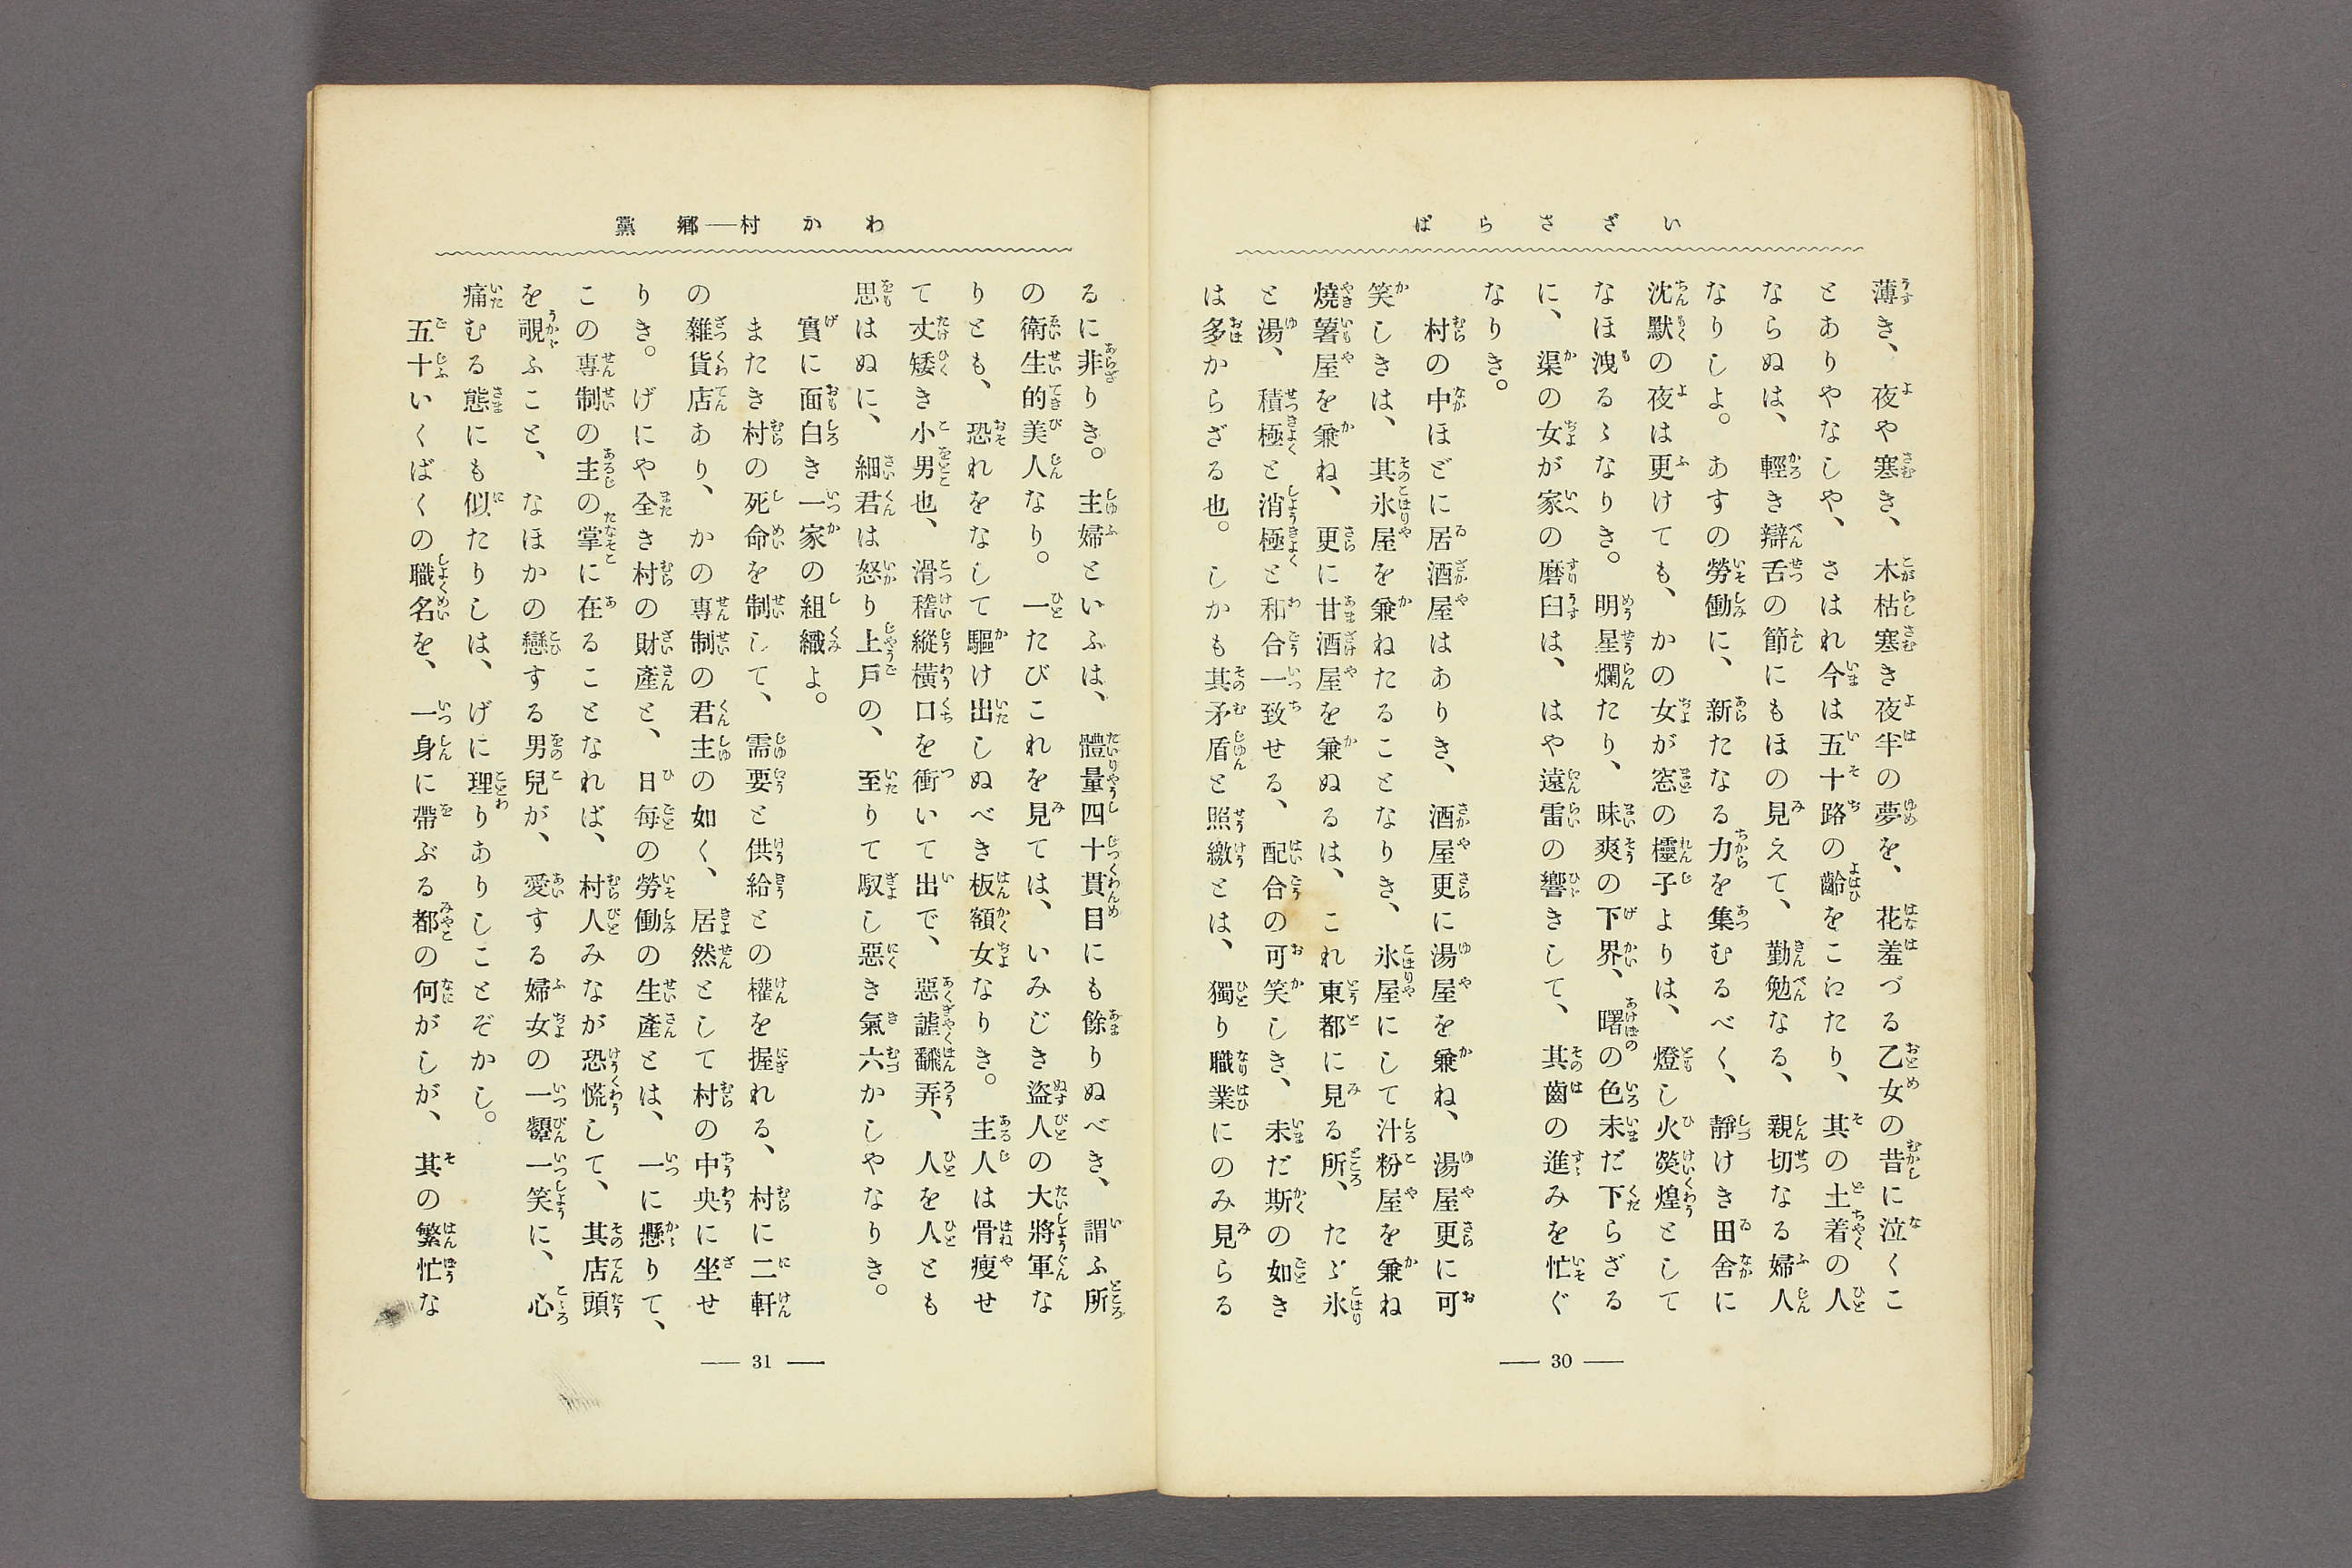 いざさらば
薄き、夜や寒き、木枯寒き夜半の夢を、花羞づる乙女の昔に泣くこ
とありやなしや、さはれ今は五十路の齡をこ𛄋たり、其の土着の人
ならぬは、輕き辯舌の節にもほの見えて、勤勉なる、親切なる婦人
なりしよ。あすの勞働に、新たなる力を集むるべく、靜けき田舍に
沈默の夜は更けても、かの女が窓の櫺子よりは、燈し火熒煌として
なほ洩るゝなりき。明星爛たり、昧爽の下界、曙の色未だ下らざる
に、渠の女が家の磨臼は、はや遠雷の響きして、其齒の進みを忙ぐ
なりき。
村の中ほどに居酒屋はありき、酒屋更に湯屋を兼ね、湯屋更に可
笑しきは、其氷屋を兼ねたることなりき、氷屋にして汁粉屋を兼ね
燒薯屋を兼ね、更に甘酒屋を兼ぬるは、これ東都に見る所、たゞ氷
と湯、積極と消極と和合一致せる、配合の可笑しき、未だ斯の如き
は多からざる也。しかも其矛盾と照繳とは、獨り職業にのみ見らる
― 30 ―
わか村―鄕黨
るに非りき。主婦といふは、體量四十貫目にも餘りぬべき、謂ふ所
の衛生的美人なり。一たびこれを見ては、いみじき盜人の大將軍な
りとも、恐れをなして驅け出しぬべき板額女なりき。主人は骨瘦せ
て丈矮き小男也、滑稽縱橫口を衝いて出で、惡謔飜弄、人を人とも
思はぬに、細君は怒り上戶の、至りて馭し惡き氣六かしやなりき。
實に面白き一家の組織よ。
またき村の死命を制して、需要と供給との權を握れる、村に二軒
の雜貨店あり、かの專制の君主の如く、居然として村の中央に坐せ
りき。げにや全き村の財產と、日每の勞働の生產とは、一に懸りて、
この專制の主の掌に在ることなれば、村人みなが恐慌して、其店頭
を覗ふこと、なほかの戀する男兒が、愛する婦女の一顰一笑に、心
痛むる態にも似たりしは、げに理りありしことぞかし。
五十いくばくの職名を、一身に帶ぶる都の何がしが、其の繁忙な
― 31 ―